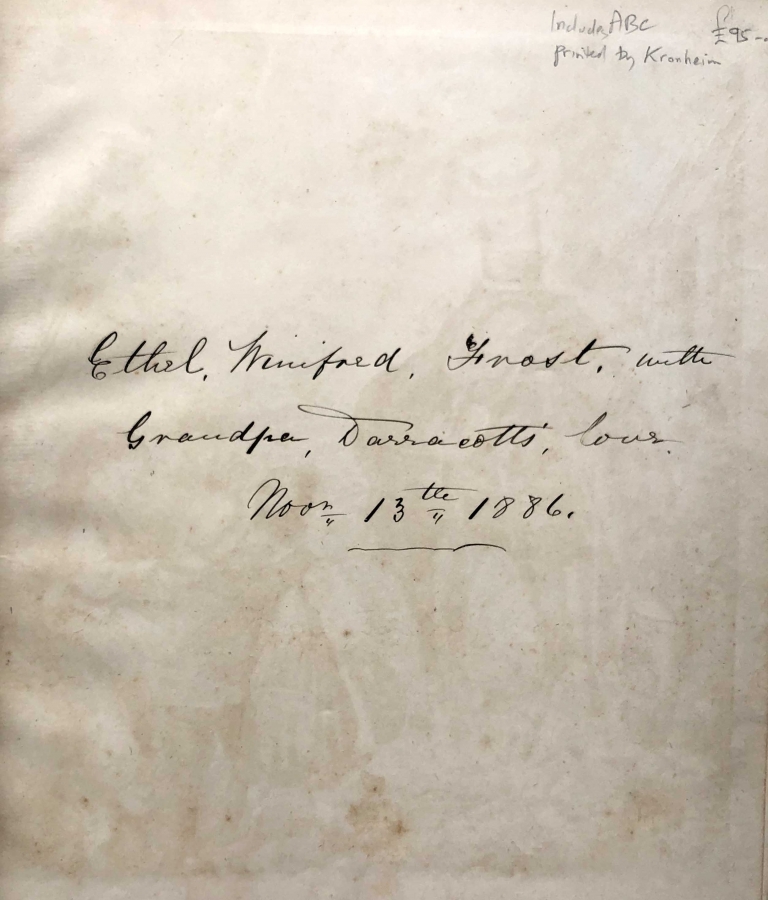 Includes ABC £95-
printed by Kronheim
Ethel, Winifred, Frost, with
Grandpa, Darracotts', love.
Novr 13th 1886.